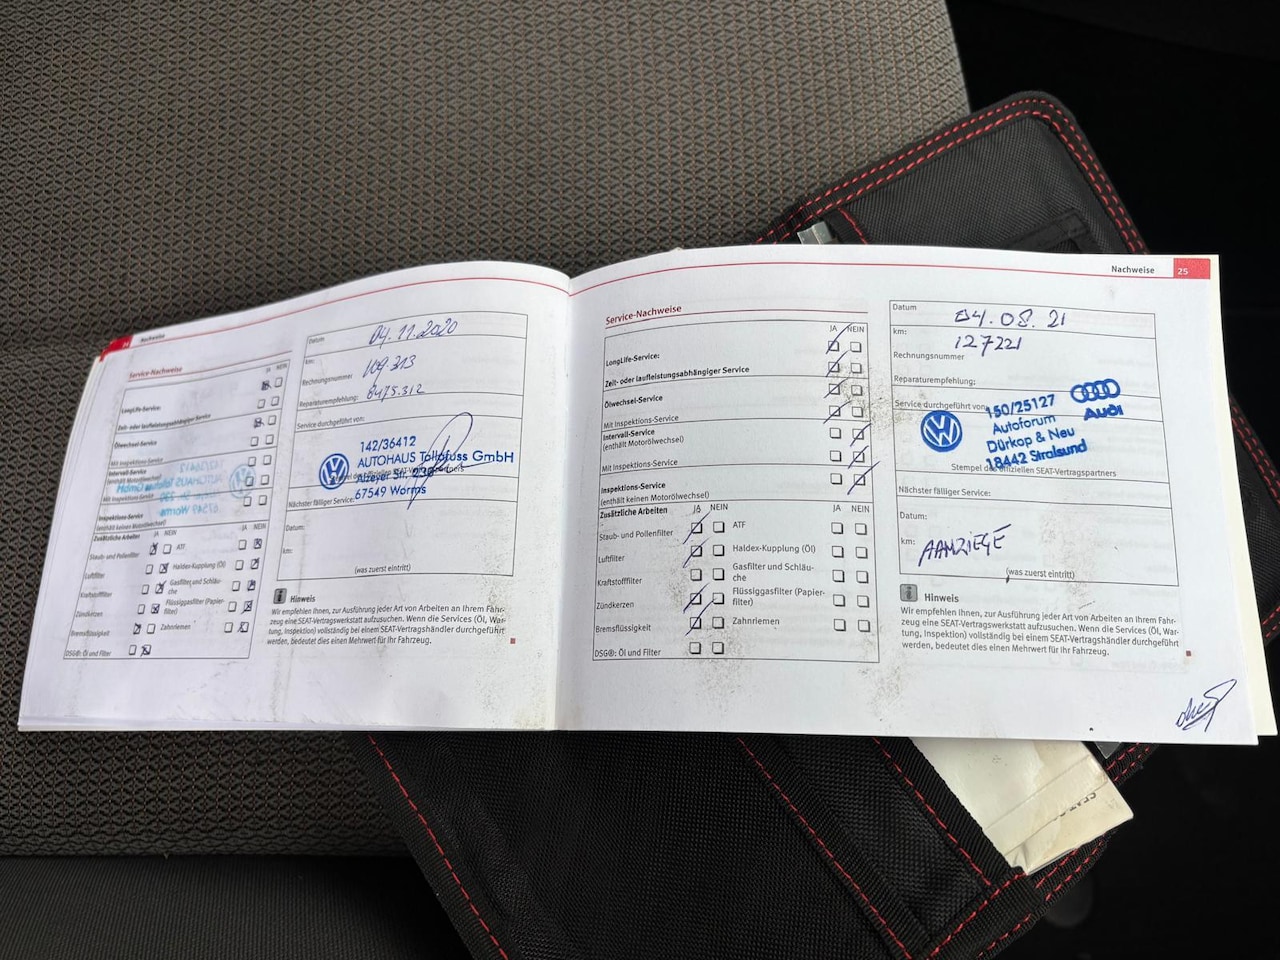 24
Nachweise
Service-Nachweise
JA NEIN
LongLife-Service:
Zeit- oder laufleistungsabhängiger Service
Ölwechsel-Service
Mit Inspektions-Service
Intervall-Service
(enthält Motorölwechsel)
Mit Inspektions-Service
Inspektions-Service
(enthält keinen Motorölwechsel)
Zusätzliche Arbeiten JA NEIN
JA NEIN
Staub- und Pollenfilter
ATF
Luftfilter
Haldex-Kupplung (Öl)
Kraftstofffilter
Gasfilter und Schläu-
che
Zündkerzen
Flüssiggasfilter (Papier-
filter)
Bremsflüssigkeit
Zahnriemen
DSG®: Öl und Filter
Datum
04.11.2020
km:
109.313
Rechnungsnummer
8475.312
Reparaturempfehlung:
Service durchgeführt von:
142/36412
AUTOHAUS Tollafuss GmbH
Alzeyer Str. 230
67549 Worms
Nächster fälliger Service:
Datum:
km:
(was zuerst eintritt)
Hinweis
Wir empfehlen Ihnen, zur Ausführung jeder Art von Arbeiten an Ihrem Fahr-
zeug eine SEAT-Vertragswerkstatt aufzusuchen. Wenn die Services (Öl, War-
tung, Inspektion) vollständig bei einem SEAT-Vertragshändler durchgeführt
werden, bedeutet dies einen Mehrwert für Ihr Fahrzeug.
Nachweise 25
Service-Nachweise
JA NEIN
LongLife-Service:
Zeit- oder laufleistungsabhängiger Service
Ölwechsel-Service
Mit Inspektions-Service
Intervall-Service
(enthält Motorölwechsel)
Mit Inspektions-Service
Inspektions-Service
(enthält keinen Motorölwechsel)
Zusätzliche Arbeiten JA NEIN
JA NEIN
Staub- und Pollenfilter
ATF
Luftfilter
Haldex-Kupplung (Öl)
Kraftstofffilter
Gasfilter und Schläu-
che
Zündkerzen
Flüssiggasfilter (Papier-
filter)
Bremsflüssigkeit
Zahnriemen
DSG®: Öl und Filter
Datum
04.08.21
km:
127221
Rechnungsnummer
Reparaturempfehlung:
Service durchgeführt von:
150/25127
Autoforum
Dürkop & Neu
18442 Stralsund
Audi
Stempel des offiziellen SEAT-Vertragspartners
Nächster fälliger Service:
Datum:
km:
AANZIEGE
(was zuerst eintritt)
Hinweis
Wir empfehlen Ihnen, zur Ausführung jeder Art von Arbeiten an Ihrem Fahr-
zeug eine SEAT-Vertragswerkstatt aufzusuchen. Wenn die Services (Öl, War-
tung, Inspektion) vollständig bei einem SEAT-Vertragshändler durchgeführt
werden, bedeutet dies einen Mehrwert für Ihr Fahrzeug.